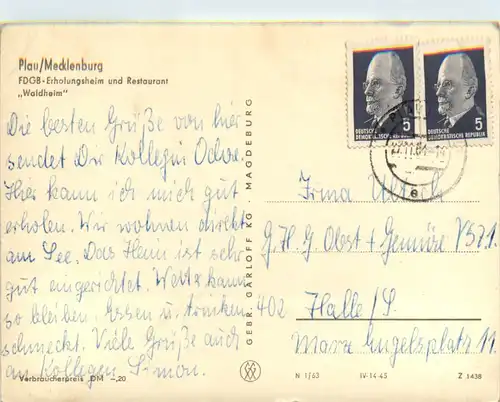 Plau/Mecklenburg
FDGB-Erholungsheim und Restaurant
„Waldheim"
Die besten Grüße von hier
sendet Dir Kollegin
Hier kann ich mich gut
erholen. Wir wohnen direkt
am See. Das Heim ist sehr
gut eingerichtet. Wetter kann
so bleiben. Essen u. trinken
schmeckt. Viele Grüße auch
an Kollegen Simon.
Verbraucherpreis DM -,20
GEBR. GARLOFF KG · MAGDEBURG
5 5
DEUTSCHE DEMOKRATISCHE REPUBLIK
DEUTSCHE DEMOKRATISCHE REPUBLIK
Irma
G.H.G Obst + Gemüse
402 Halle/S.
Marx Engelsplatz
N 1/63 IV-14-45 Z 1438